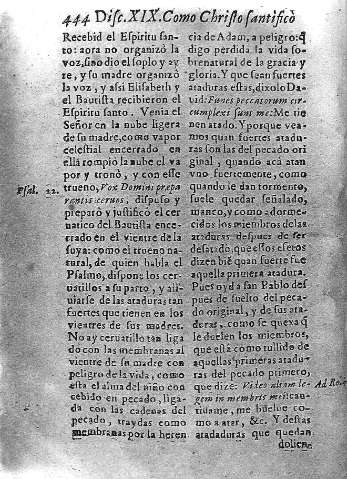 444 Disc. XIX. Como Christo santificò
Recebid el Espiritu san-
to: aora no organizó la
voz, sino dió el soplo y ay
re, y su madre organizó
la voz, y assi Elisabeth y
el Bautista recibieron el
Espiritu santo. Venia el
Señor en la nube ligera
de su madre, como vapor
celestial encerrado en
ella rompiò la nube el va
por y tronó, y con este
Psal. 22.
trueno, Vox Domini prepa
rantis ceruos, dispuso y
preparó y justificó el cer
uatico del Bautista ence-
rrado en el vientre de la
suya: como el trueno na-
tural, de quien habla el
Psalmo, dispone los cer-
uatillos a su parto, y ali-
uiarse de las ataduras tan
fuertes que tienen en los
vientres de sus madres.
No ay ceruatillo tan liga
do con las membranas al
vientre de su madre con
peligro de la vida, como
esta el alma del niño con
cebido en pecado, liga-
da con las cadenas del
pecado, traydas como
membranas por la heren
cia de Adam, a peligro: q̃
digo perdida la vida so-
brenatural de la gracia y
gloria. Y que sean fuertes
ataduras estas, dixolo Da-
uid: Funes peccatorum cir-
cumplexi sunt me: Me tie
nen atado. Y porque vea-
mos quan fuertes atadu-
ras son las del pecado ori
ginal, quando acá atan
vno fuertemente, como
quando le dan tormento,
suele quedar señalado,
manco, y como adorme-
cidos los miembros de las
ataduras despues de ser
desatado, que estos efetos
dizen biẽ quan fuerte fue
aquella primera atadura.
Pues oyd a san Pablo des
pues de suelto del peca-
do original, y de sus ata-
duras, como se quexa q̃
le duelen los miembros,
que esta como tullido de
aquellas primeras atadu-
ras del pecado primero,
que dize: Video aliam le-
Ad Ro
gem in membris meis: can-
tiuame, me buelue co-
mo a atar, &c. Y destas
atadaduras que quedan
dolien-